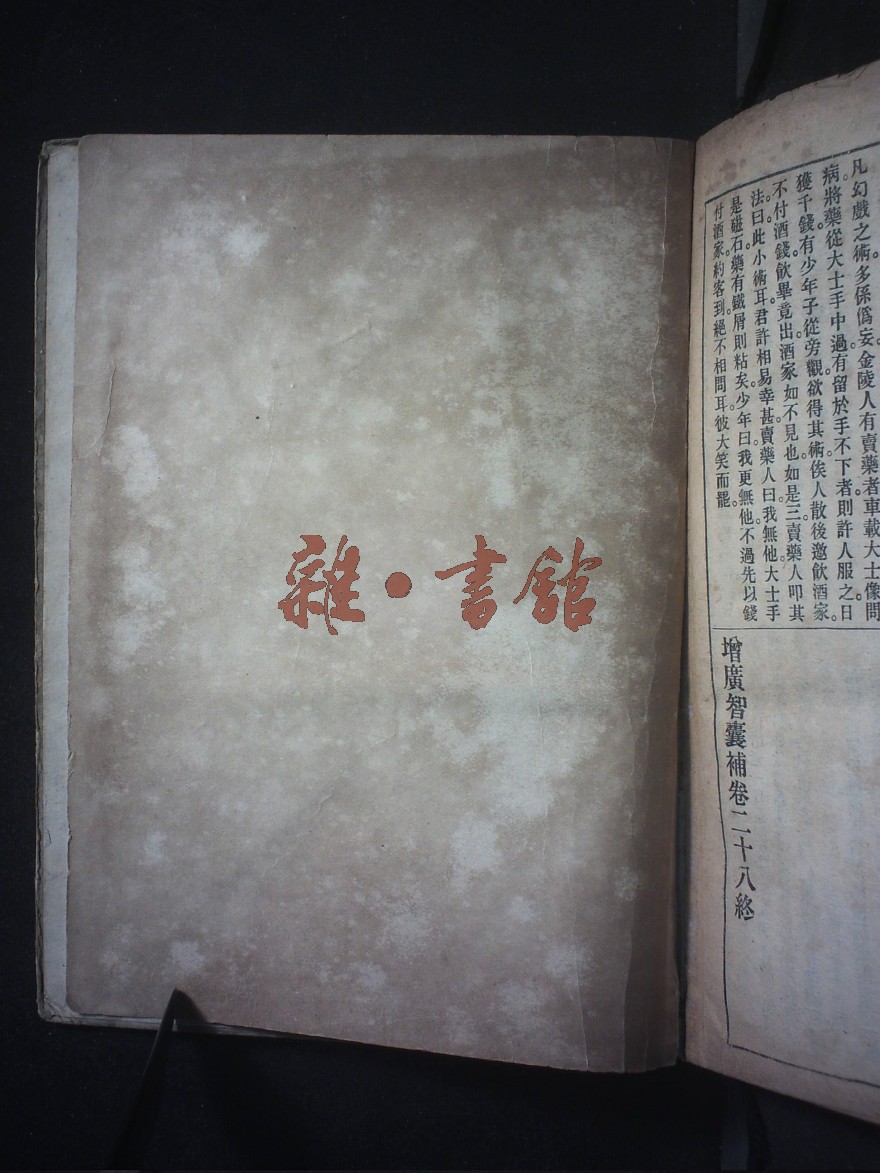 凡幻戲之術。多係僞妄。金陵人有賣藥者。車載大士像問
病。將藥從大士手中過。有留於手不下者。則許人服之。日
獲千錢。有少年子從旁觀。欲得其術。俟人散後。邀飲酒家。
不付酒錢。飲畢竟出。酒家如不見也。如是三。賣藥人叩其
法。曰此小術耳。君許相易。幸甚。賣藥人曰。我無他。大士手
是磁石。藥有鐵屑則粘矣。少年曰。我更無他。不過先以錢
付酒家。約客到絕不相問耳。彼大笑而罷。
增廣智囊補卷二十八終
雜·書館